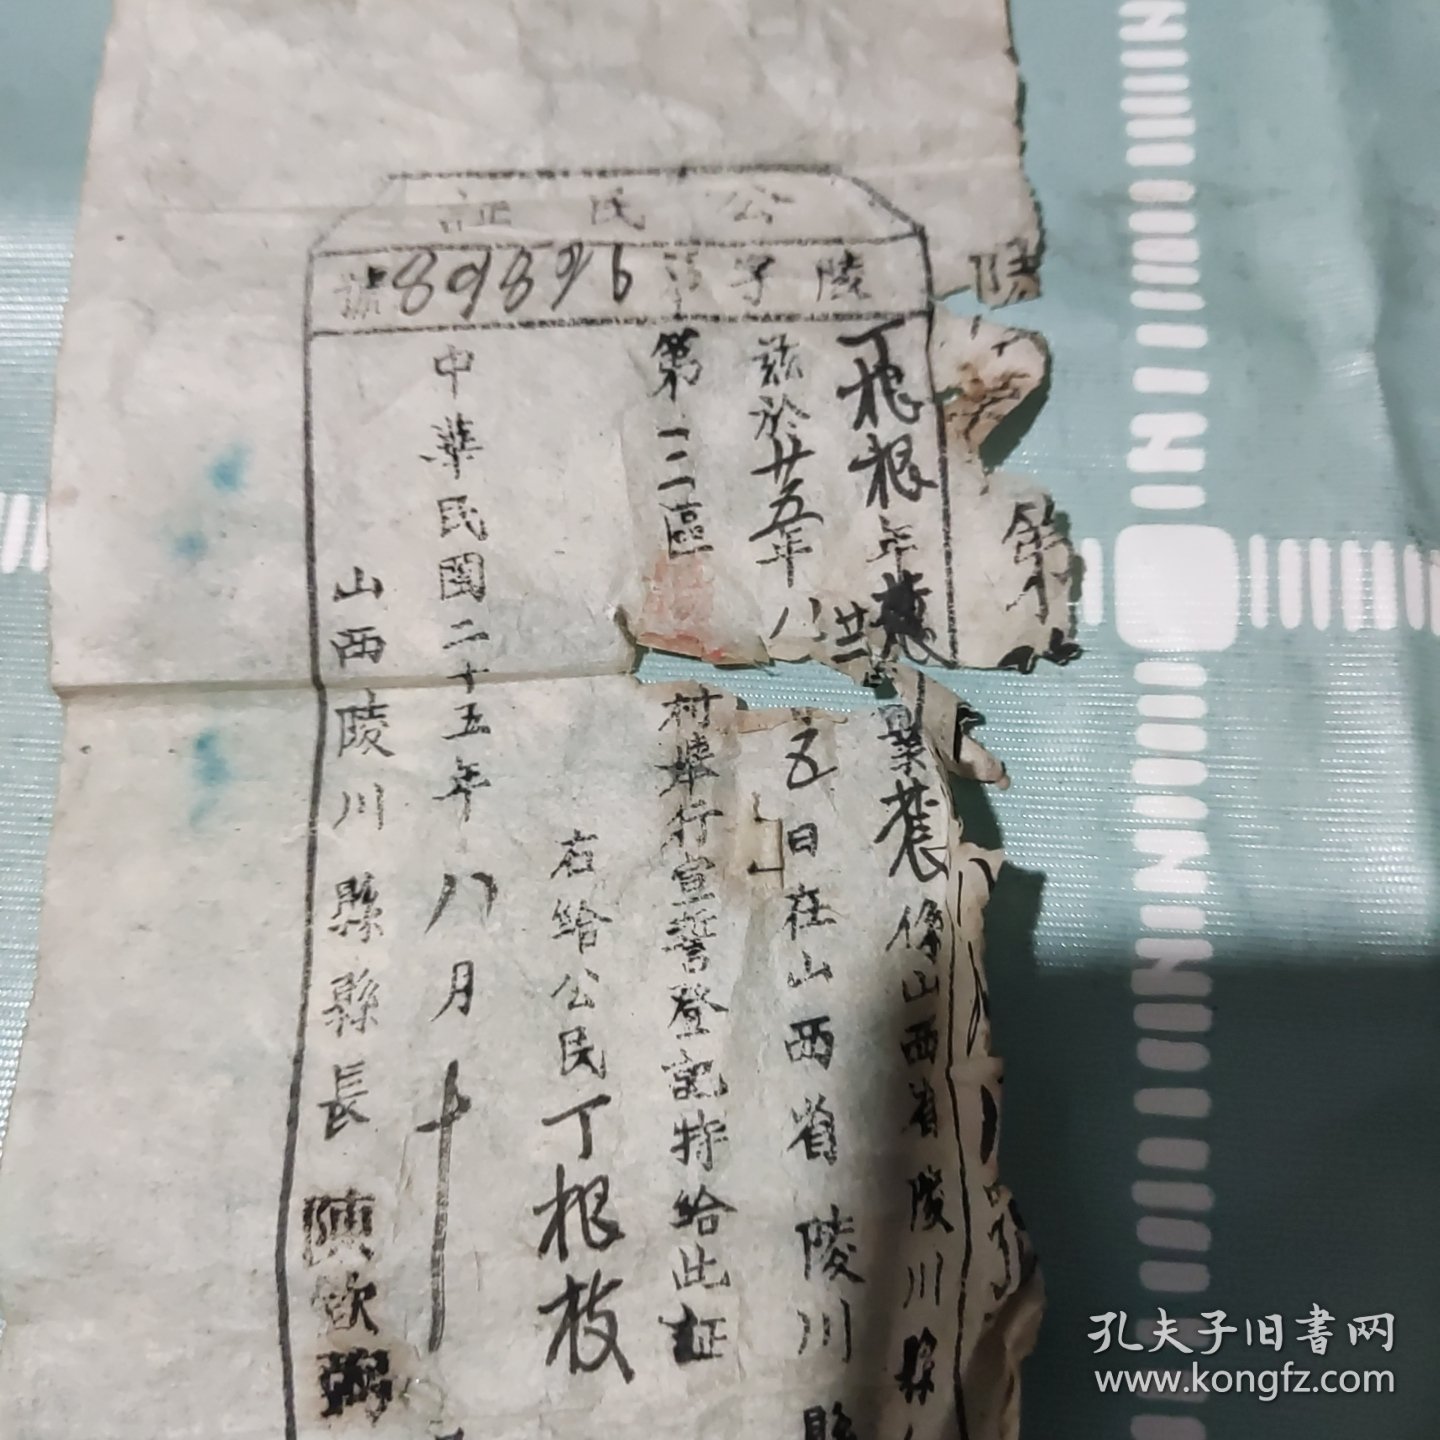 公民証
陵字第89896號
丁根枝年
業農係山西省陵川縣
茲於廿五年八
五日在山西省陵川縣
第二區
村舉行宣誓登記特給此証
右給公民丁根枝
中華民國二十五年八月十
山西陵川縣縣長陳欽
第
孔夫子旧書网
www.kongfz.com